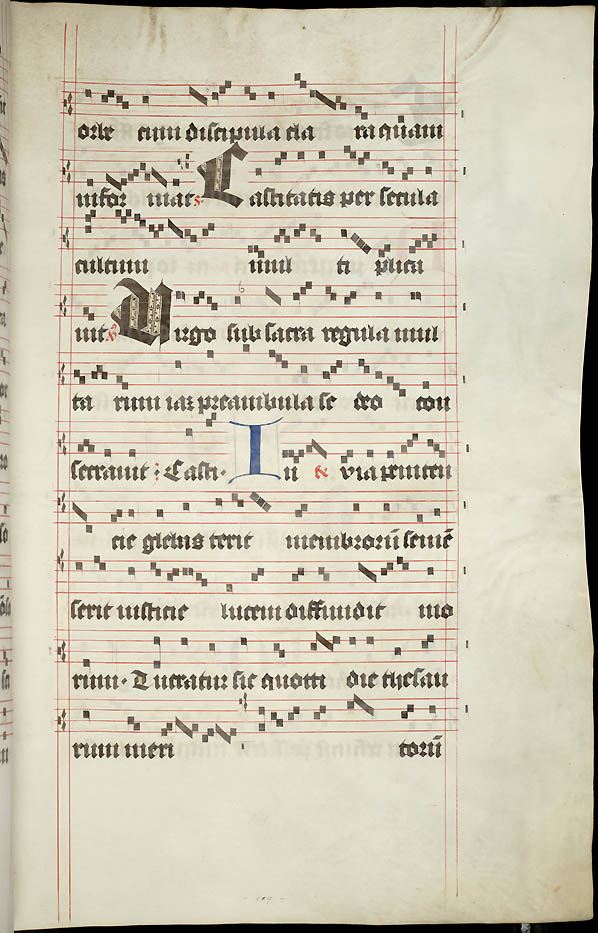 orbe cum discipula cla ra quam
infor mat s Castitatis per secula
cultum mul ti plica
uit Uirgo sub sacra regula mul
ta rum iam preambula se deo con
secrauit : Casti · In via peniten
cie glebas terit membrorū semē
serit iusticie lucem diffundit mo
rum · Lucratur sic quotti die thesau
rum meri torū